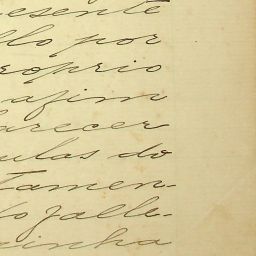 esente
llo por
proprio
afim
parecer
ulas do
tamen-
do falle-
inha